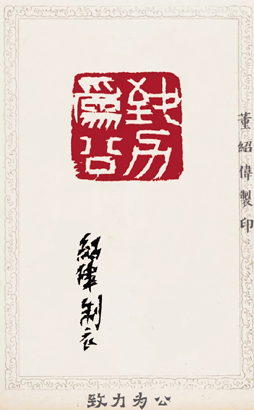 致力
為公
董紹偉製印
紹偉製
致力为公